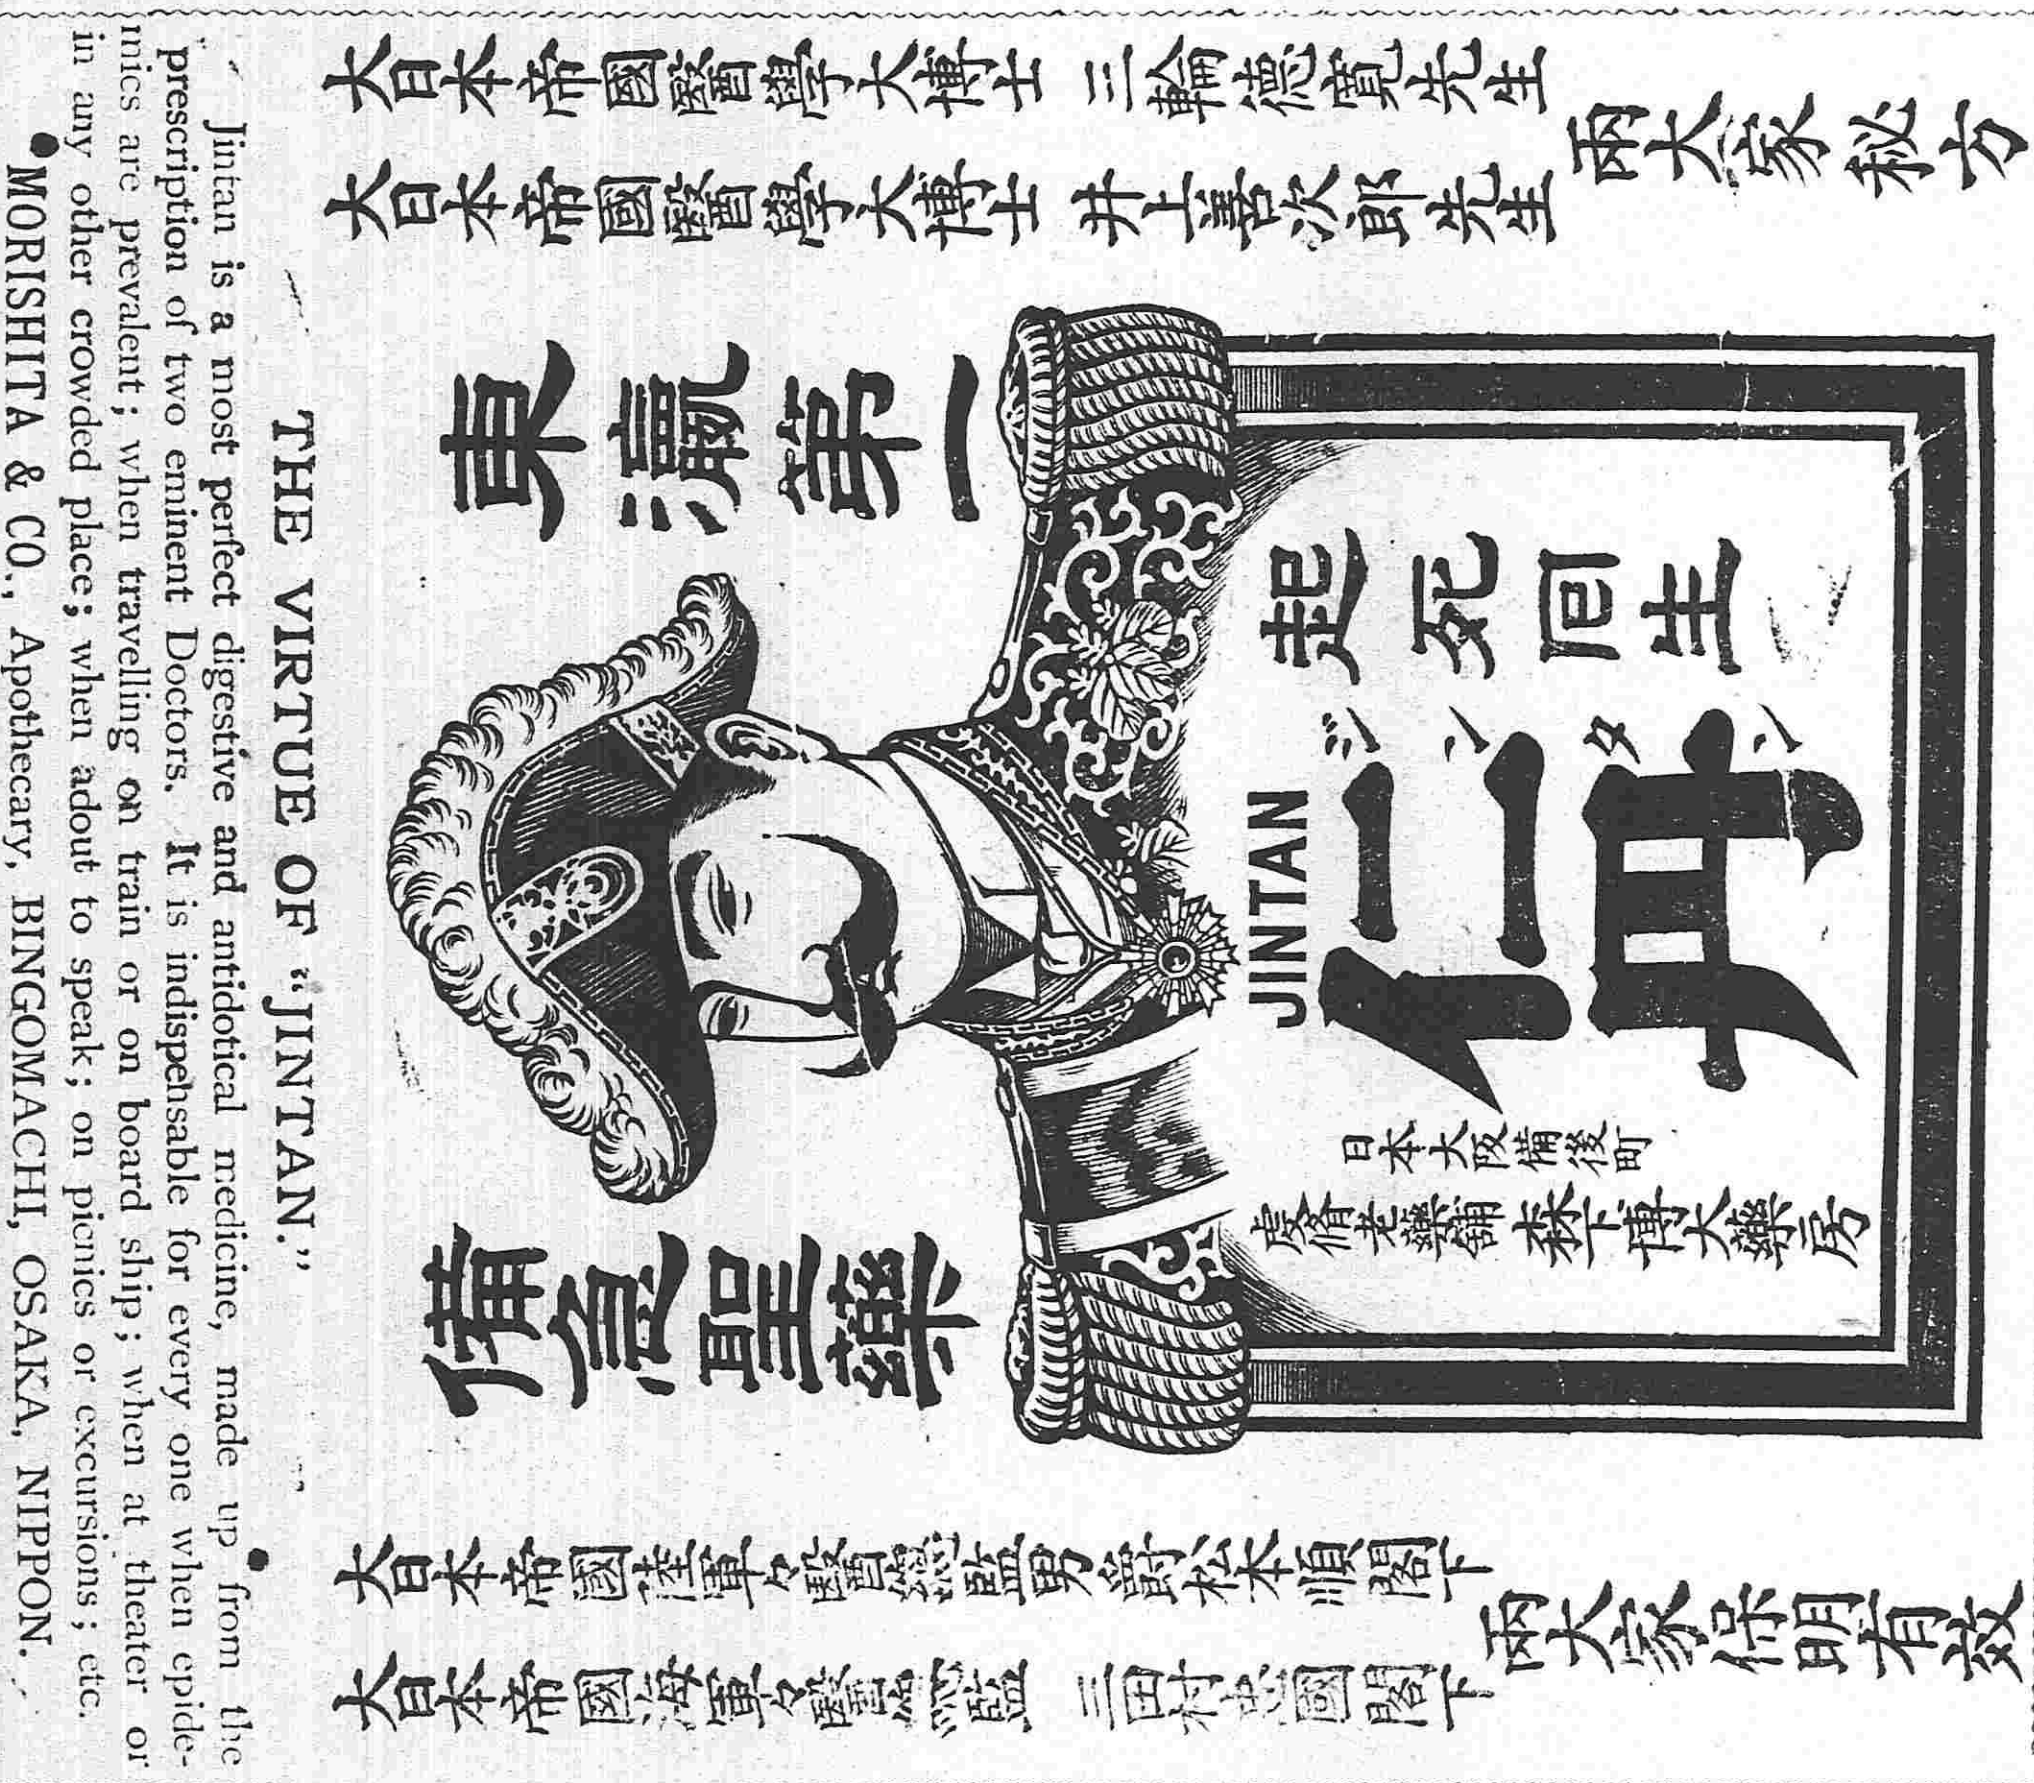 大日本帝國醫學大博士 三輪德寬先生
大日本帝國醫學大博士 井上善次郎先生
兩大家秘方
東瀛第一
起死回生
ジンタン
仁丹
JINTAN
日本大阪備後町
老藥舖 森下博大藥房
備急聖藥
大日本帝國陸軍々醫總監男爵松本順閣下
大日本帝國海軍々醫總監 三田村忠國閣下
兩大家保明有效
THE VIRTUE OF “JINTAN.”
Jintan is a most perfect digestive and antidotical medicine, made up from the
prescription of two eminent Doctors. It is indispehsable for every one when epide-
mics are prevalent; when travelling on train or on board ship; when at theater or
in any other crowded place; when adout to speak; on picnics or excursions; etc.
●MORISHITA & CO., Apothecary, BINGOMACHI, OSAKA, NIPPON.